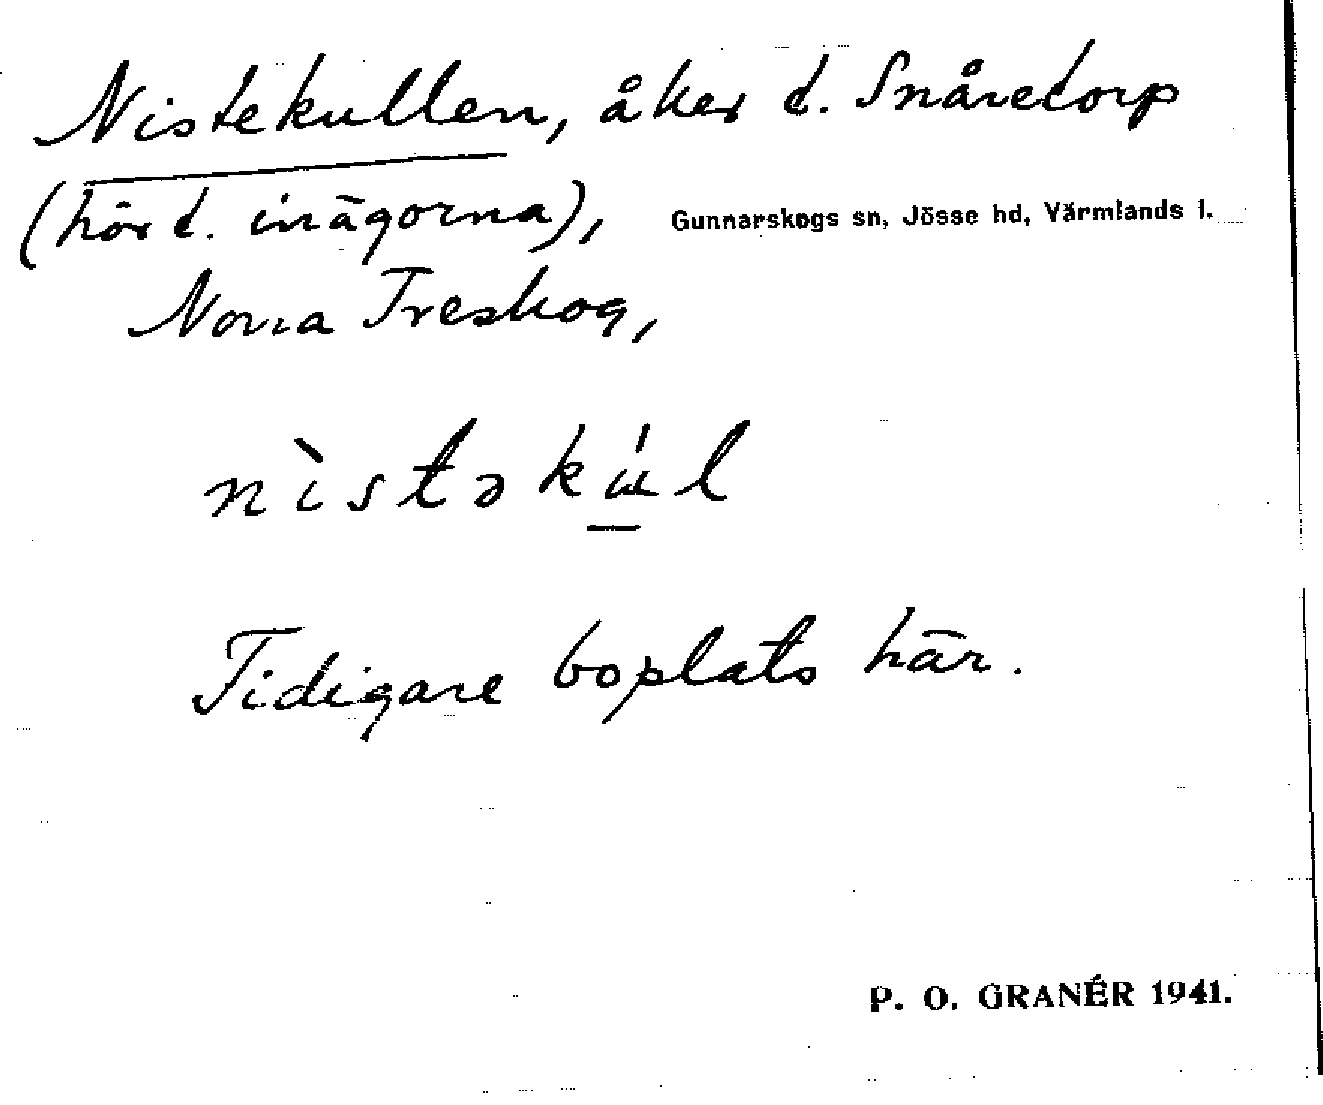 Nistekullen, åker t. Snåretorp
(hör t. inägorna),
Gunnarskogs sn, Jösse hd, Värmlands l.
Norra Treskog,
nìstəkúl
Tidigare boplats här.
P. O. GRANÉR 1941.